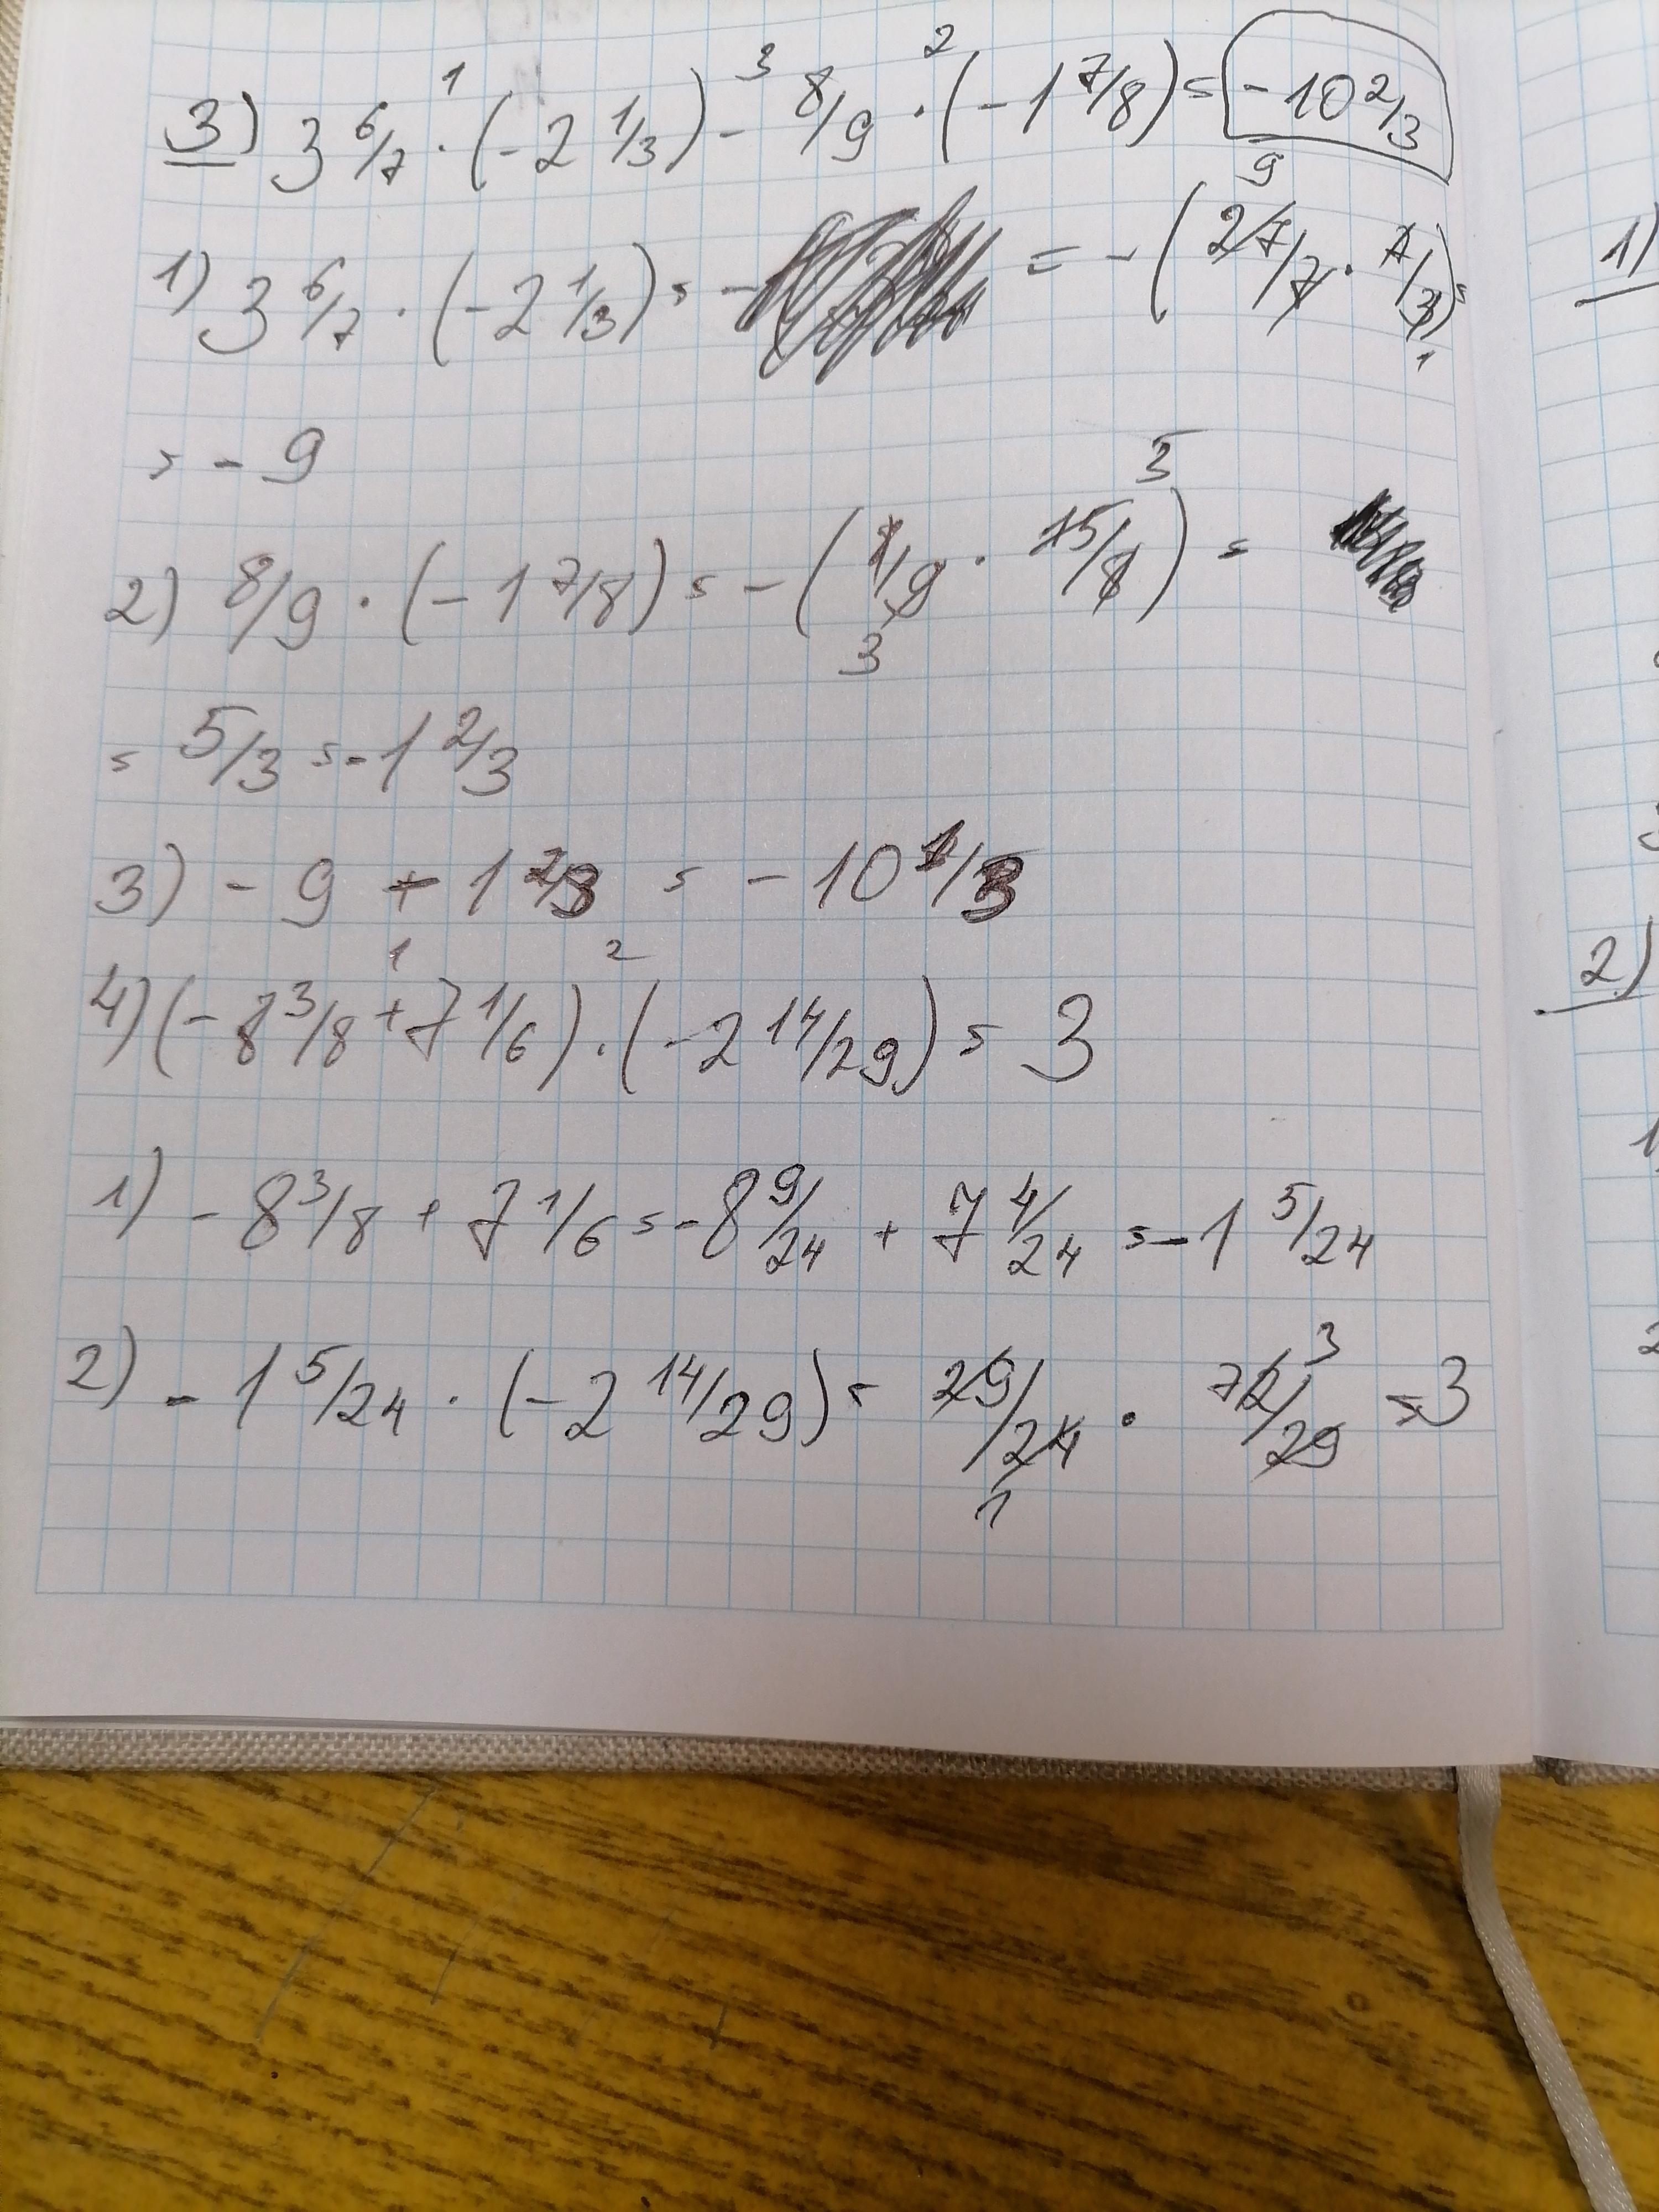 3) 3 6/7 · (-2 1/3) - 8/9 · (-1 7/8) = -10 2/3
1) 3 6/7 · (-2 1/3) = - = - (27/7 · 7/3) =
= - 9
2) 8/9 · (-1 7/8) = - (8/9 · 15/8) =
= 5/3 = -1 2/3
3) - 9 + 1 2/3 = - 10
4) (-8 3/8 + 7 1/6) · (-2 14/29) = 3
1) - 8 3/8 + 7 1/6 = -8 9/24 + 7 4/24 = -1 5/24
2) - 1 5/24 · (-2 14/29) = 29/24 · 72/29 = 3
1)
2)